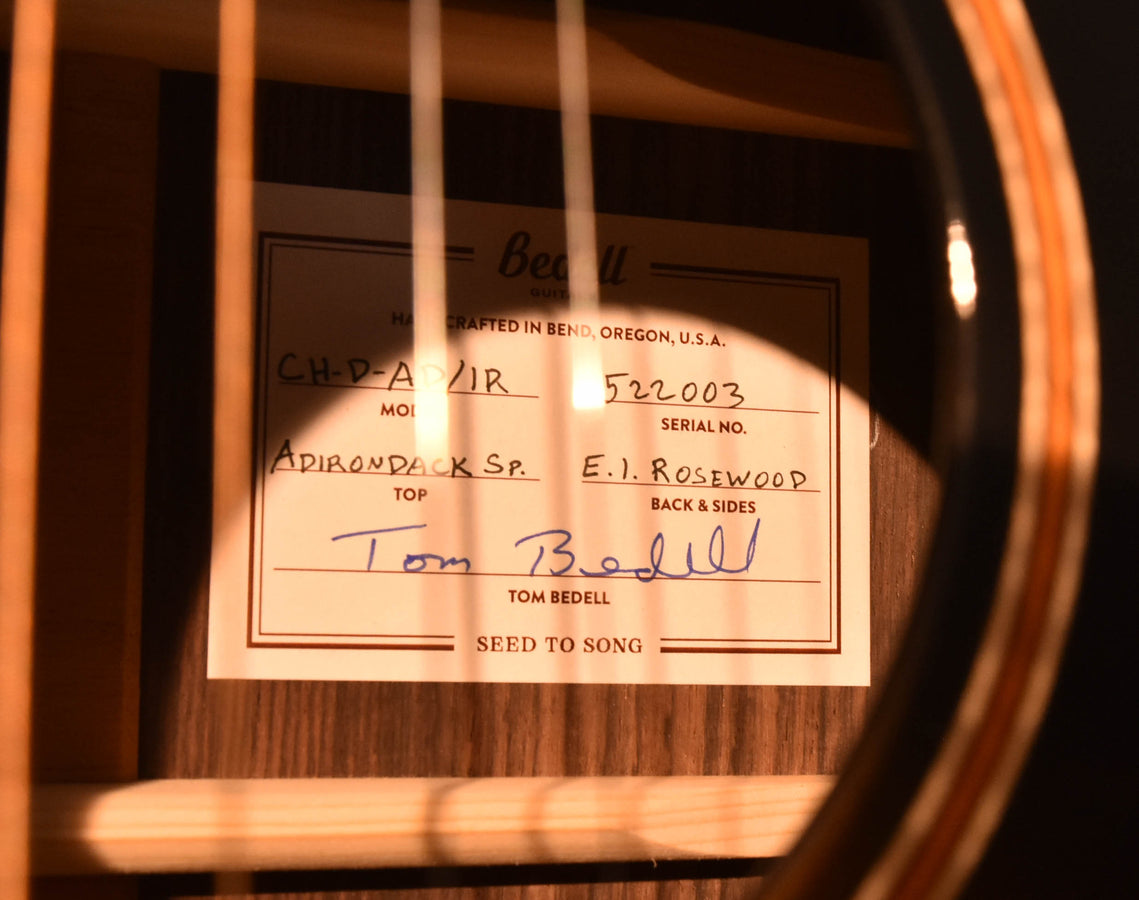 Bedell
GUITARS
HANDCRAFTED IN BEND, OREGON, U.S.A.
CH-D-AD/IR 522003
MODEL SERIAL NO.
ADIRONDACK SP. E.I. ROSEWOOD
TOP BACK & SIDES
Tom Bedell
TOM BEDELL
SEED TO SONG